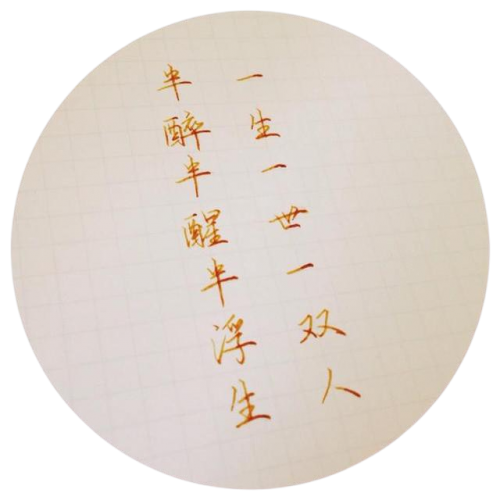 一生一世一双人
半醉半醒半浮生